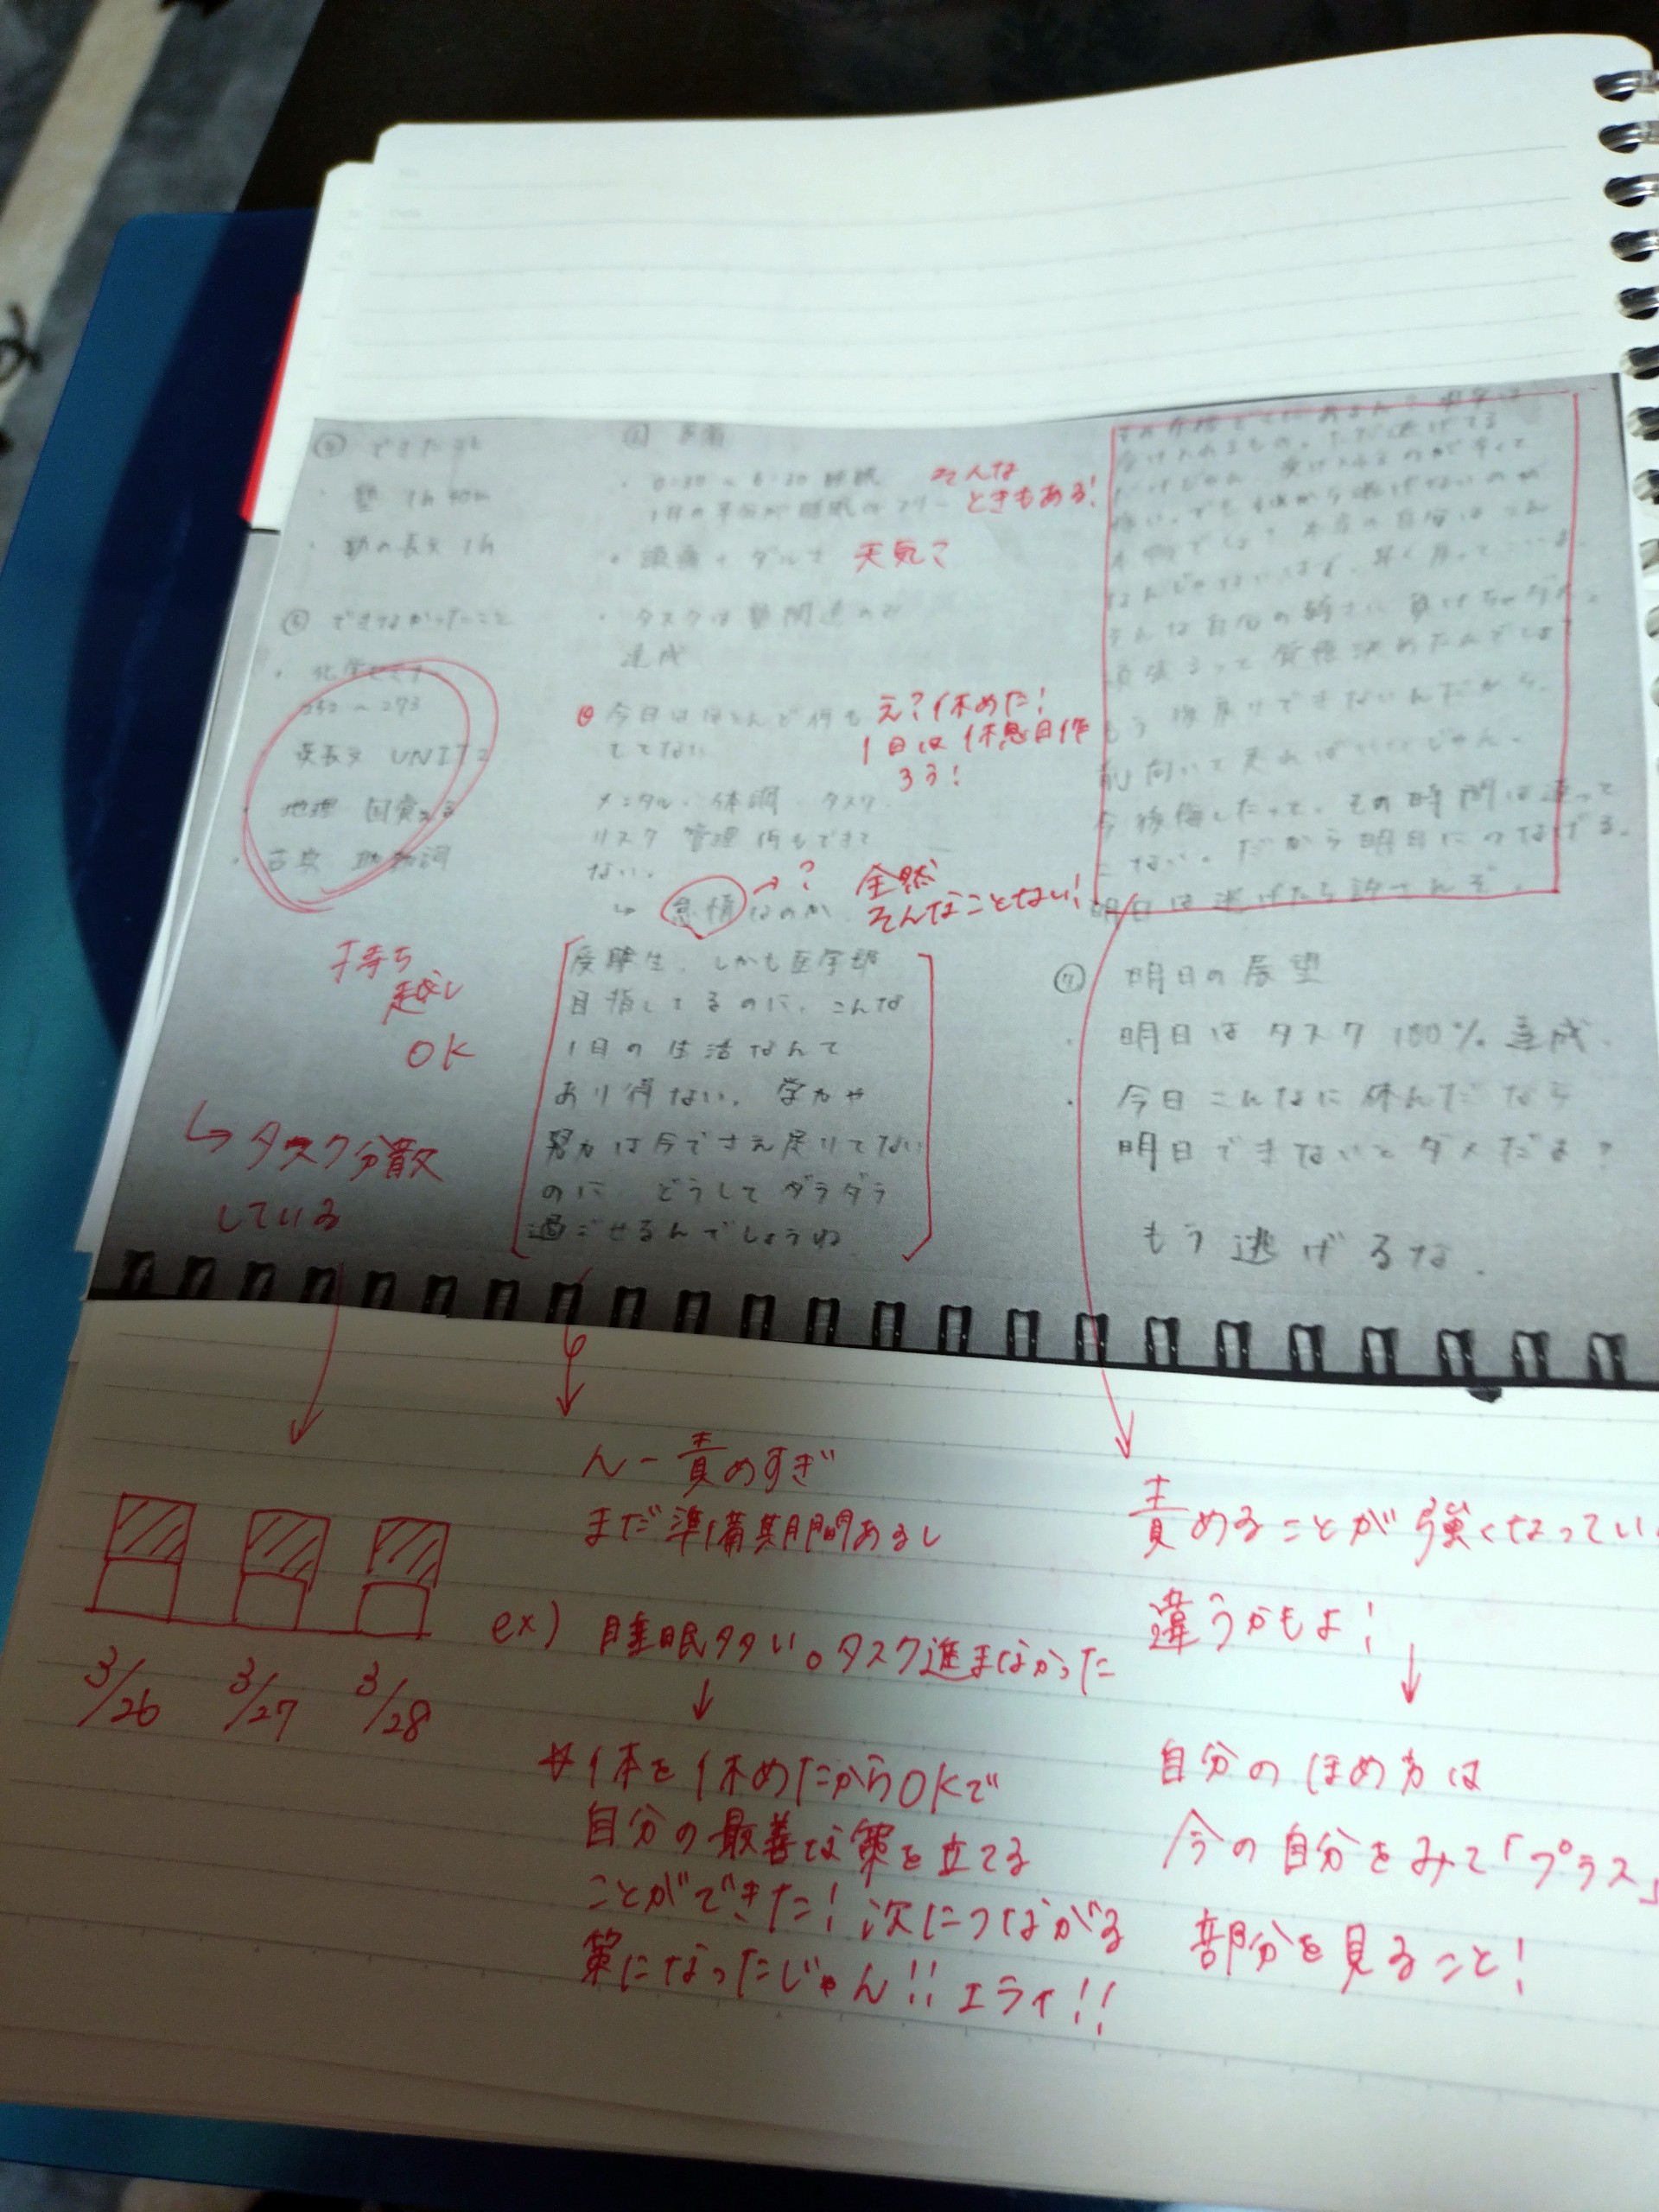 ④ できたこと
・塾 7h40m
・動の長文 1h
⑤ できなかったこと
・化学セミナー
250〜273
英長文 UNIT2
・地理
・古典 助動詞
手持ち
越し
OK
↳タスク分散
している
3/26 3/27 3/28
0:30〜6:30 睡眠
そんな
ときもある!
1日の半分が睡眠
・頭痛+ダルさ
天気?
・タスクは塾関連のみ
達成
今日はほとんど何も
してない
え?休めた!
1日は休息日作
ろう!
メンタル・体調 タスク
リスク 管理 何もできて
ない。
↳怠惰なのか
→?
全然
そんなことない!
受験生、しかも医学部
目指してるのに、こんな
1日の生活なんて
あり得ない。学力や
努力は今でさえ足りてない
のに どうしてダラダラ
過ごせるんでしょうね
んー責めすぎ
まだ準備期間あるし
ex) 睡眠多い。タスク進まなかった
↓
☆体を休めたからOKで
自分の最善な策を立てる
ことができた!次につながる
策になったじゃん!!エライ!!
そんな自分の弱さに負けちゃダメ。
頑張るって覚悟決めたんでしょ?
もう後戻りできないんだから。
前向いて走ればいいじゃん。
今後悔したって、その時間は戻って
こない。だから明日につなげる。
明日は逃げたら許さんぞ。
⑦ 明日の展望
・明日はタスク100%達成
・今日こんなに休んだなら
明日できないとダメだよ?
もう逃げるな。
責めることが強くなってい
違うかもよ!
↓
自分のほめ方は
今の自分をみて「プラス」
部分を見ること!